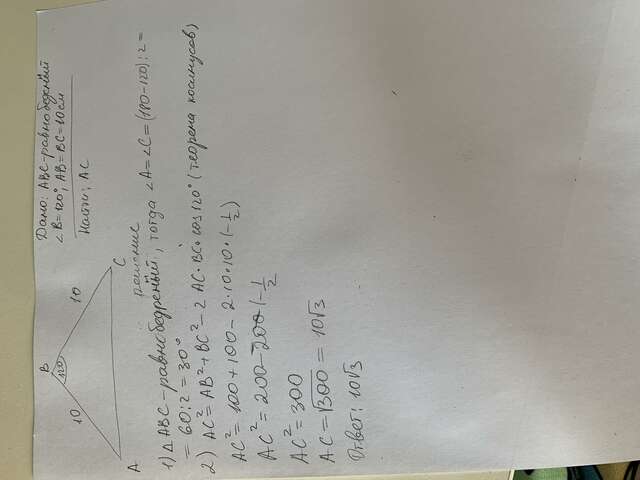 Дано: ABC-равнобедреный
∠B=120°, AB=BC=10см
Найти: AC
B
120
10
10
A
C
решение
1) △ABC-равнобедренный, тогда ∠A=∠C=(180-120):2=
=60:2=30°
2) AC²=AB²+BC²-2 AC·BC·cos120° (теорема косинусов)
AC²=100+100-2·10·10·(-1/2)
AC²=200-200·(-1/2
AC²=300
AC=√300=10√3
Ответ: 10√3